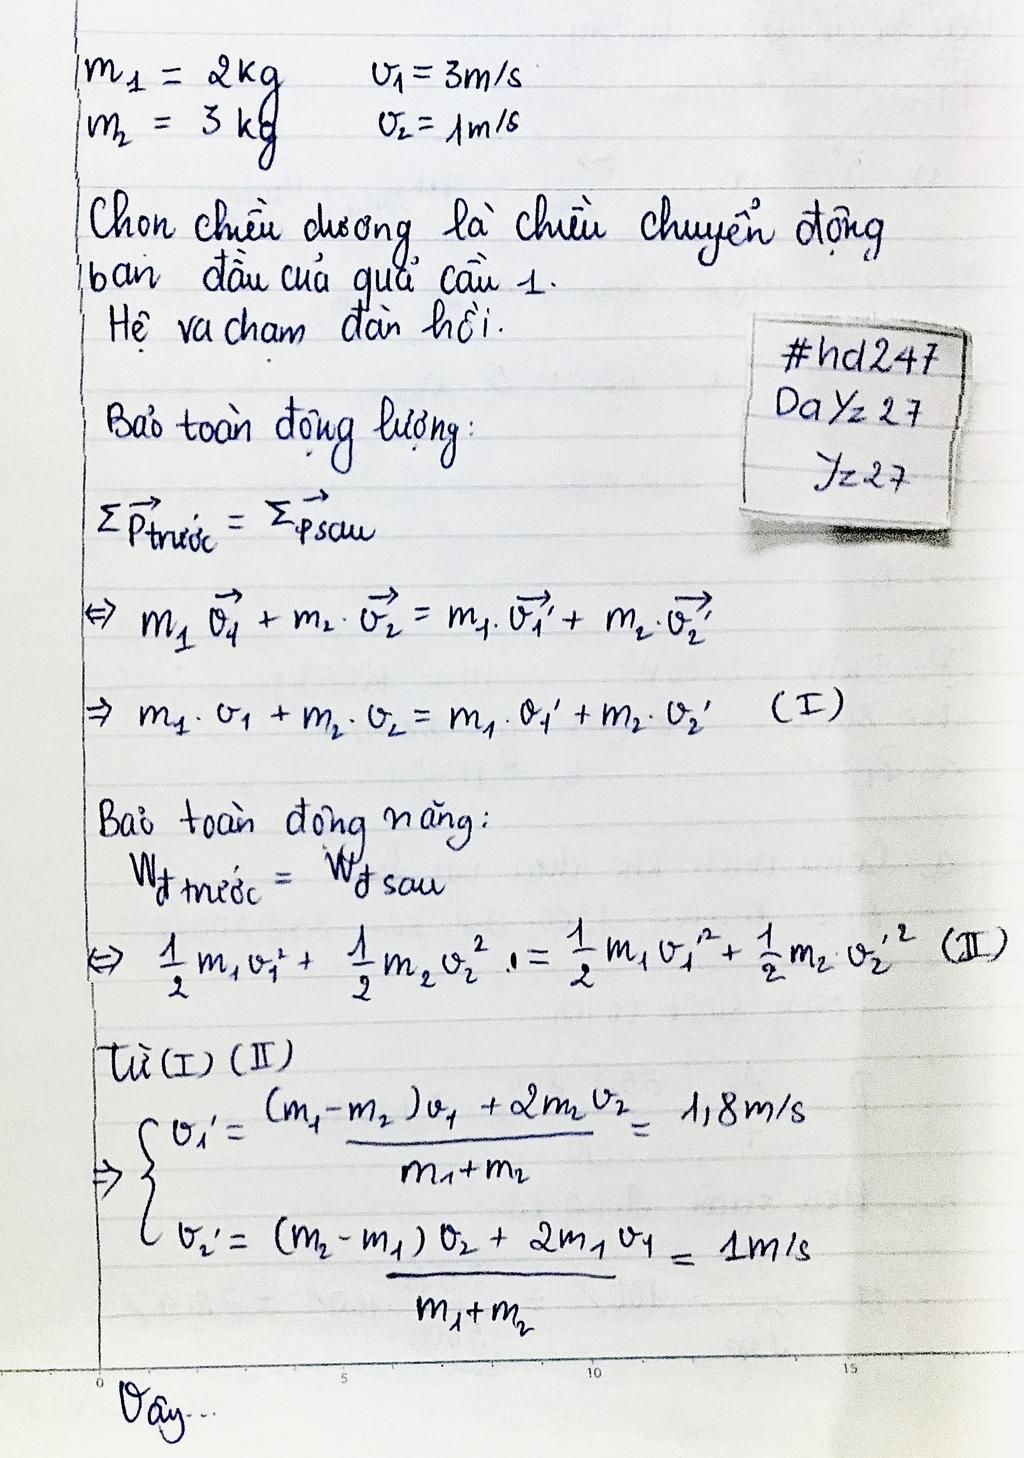 m₁ = 2kg v₁ = 3m/s
m₂ = 3 kg v₂ = 1m/s
Chọn chiều dương là chiều chuyển động
ban đầu của quả cầu 1.
Hệ va chạm đàn hồi.
#hd247
DaYz27
Yz27
Bảo toàn động lượng:
Σ P⃗trước = Σ P⃗sau
⇔ m₁ v⃗₁ + m₂ . v⃗₂ = m₁ . v⃗₁' + m₂ . v⃗₂'
⇒ m₁ . v₁ + m₂ . v₂ = m₁ . v₁' + m₂ . v₂' (I)
Bảo toàn động năng:
Wđ trước = Wđ sau
⇔ 1/2 m₁ v₁² + 1/2 m₂ v₂² = 1/2 m₁ v₁'² + 1/2 m₂ . v₂'² (II)
Từ (I) (II)
⇒ { v₁' = (m₁ - m₂) v₁ + 2m₂ v₂ / m₁ + m₂ = 1,8m/s
v₂' = (m₂ - m₁) v₂ + 2m₁ v₁ / m₁ + m₂ = 1m/s
0 5 10 15
Vậy...